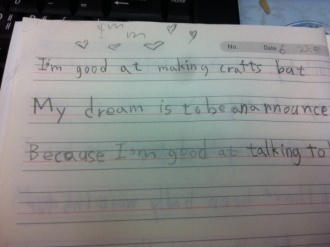 No.
Date 6
I'm good at making crafts but
My dream is to be an announce
Because I'm good at talking to